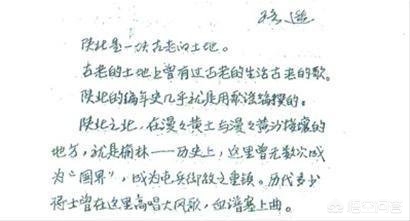 路遥
陕北是一块古老的土地。
古老的土地上曾有过古老的生活古老的歌。
陕北的编年史几乎就是用歌谣编撰的。
陕北之北，在漫漫黄土与漫漫黄沙接壤的
地方，就是榆林——历史上，这里曾无数次成
为“国界”，成为屯兵御敌之重镇。历代多少
将士曾在这里高唱大风歌，血谱塞上曲。
悟空问答